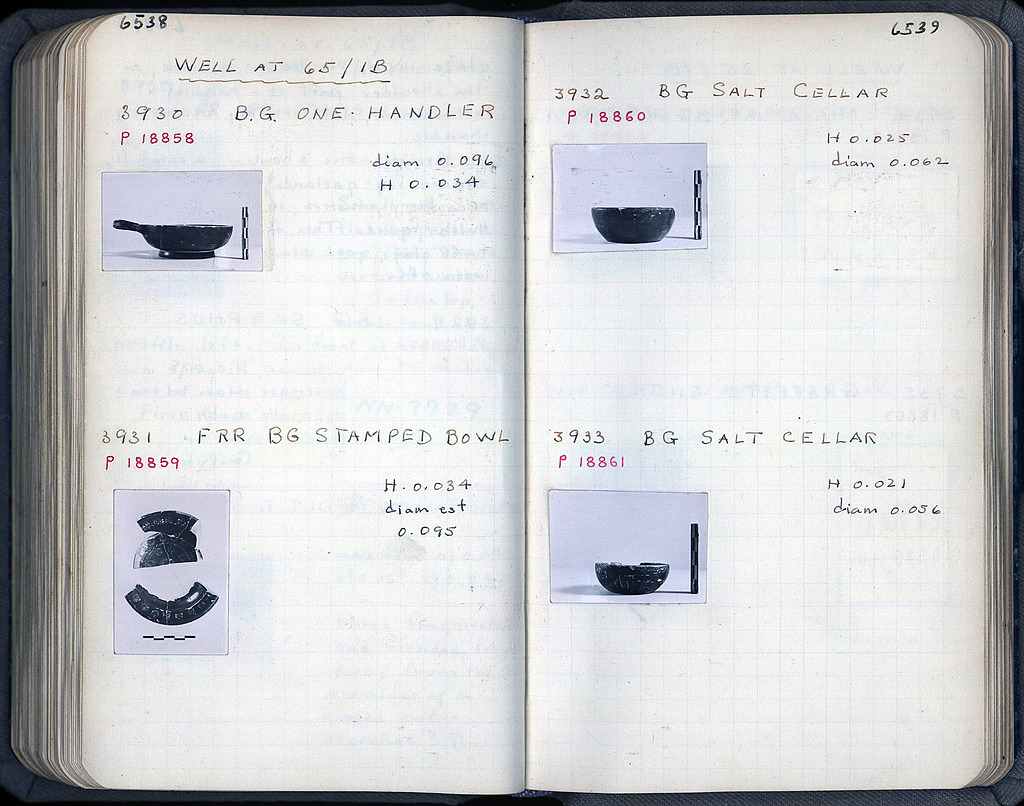 6538
WELL AT 65/1B
3930 B.G. ONE-HANDLER
P 18858
diam 0.096
H 0.034
3931 FRR BG STAMPED BOWL
P 18859
H. 0.034
diam est
0.095
6539
3932 BG SALT CELLAR
P 18860
H 0.025
diam 0.062
3933 BG SALT CELLAR
P 18861
H 0.021
diam 0.056